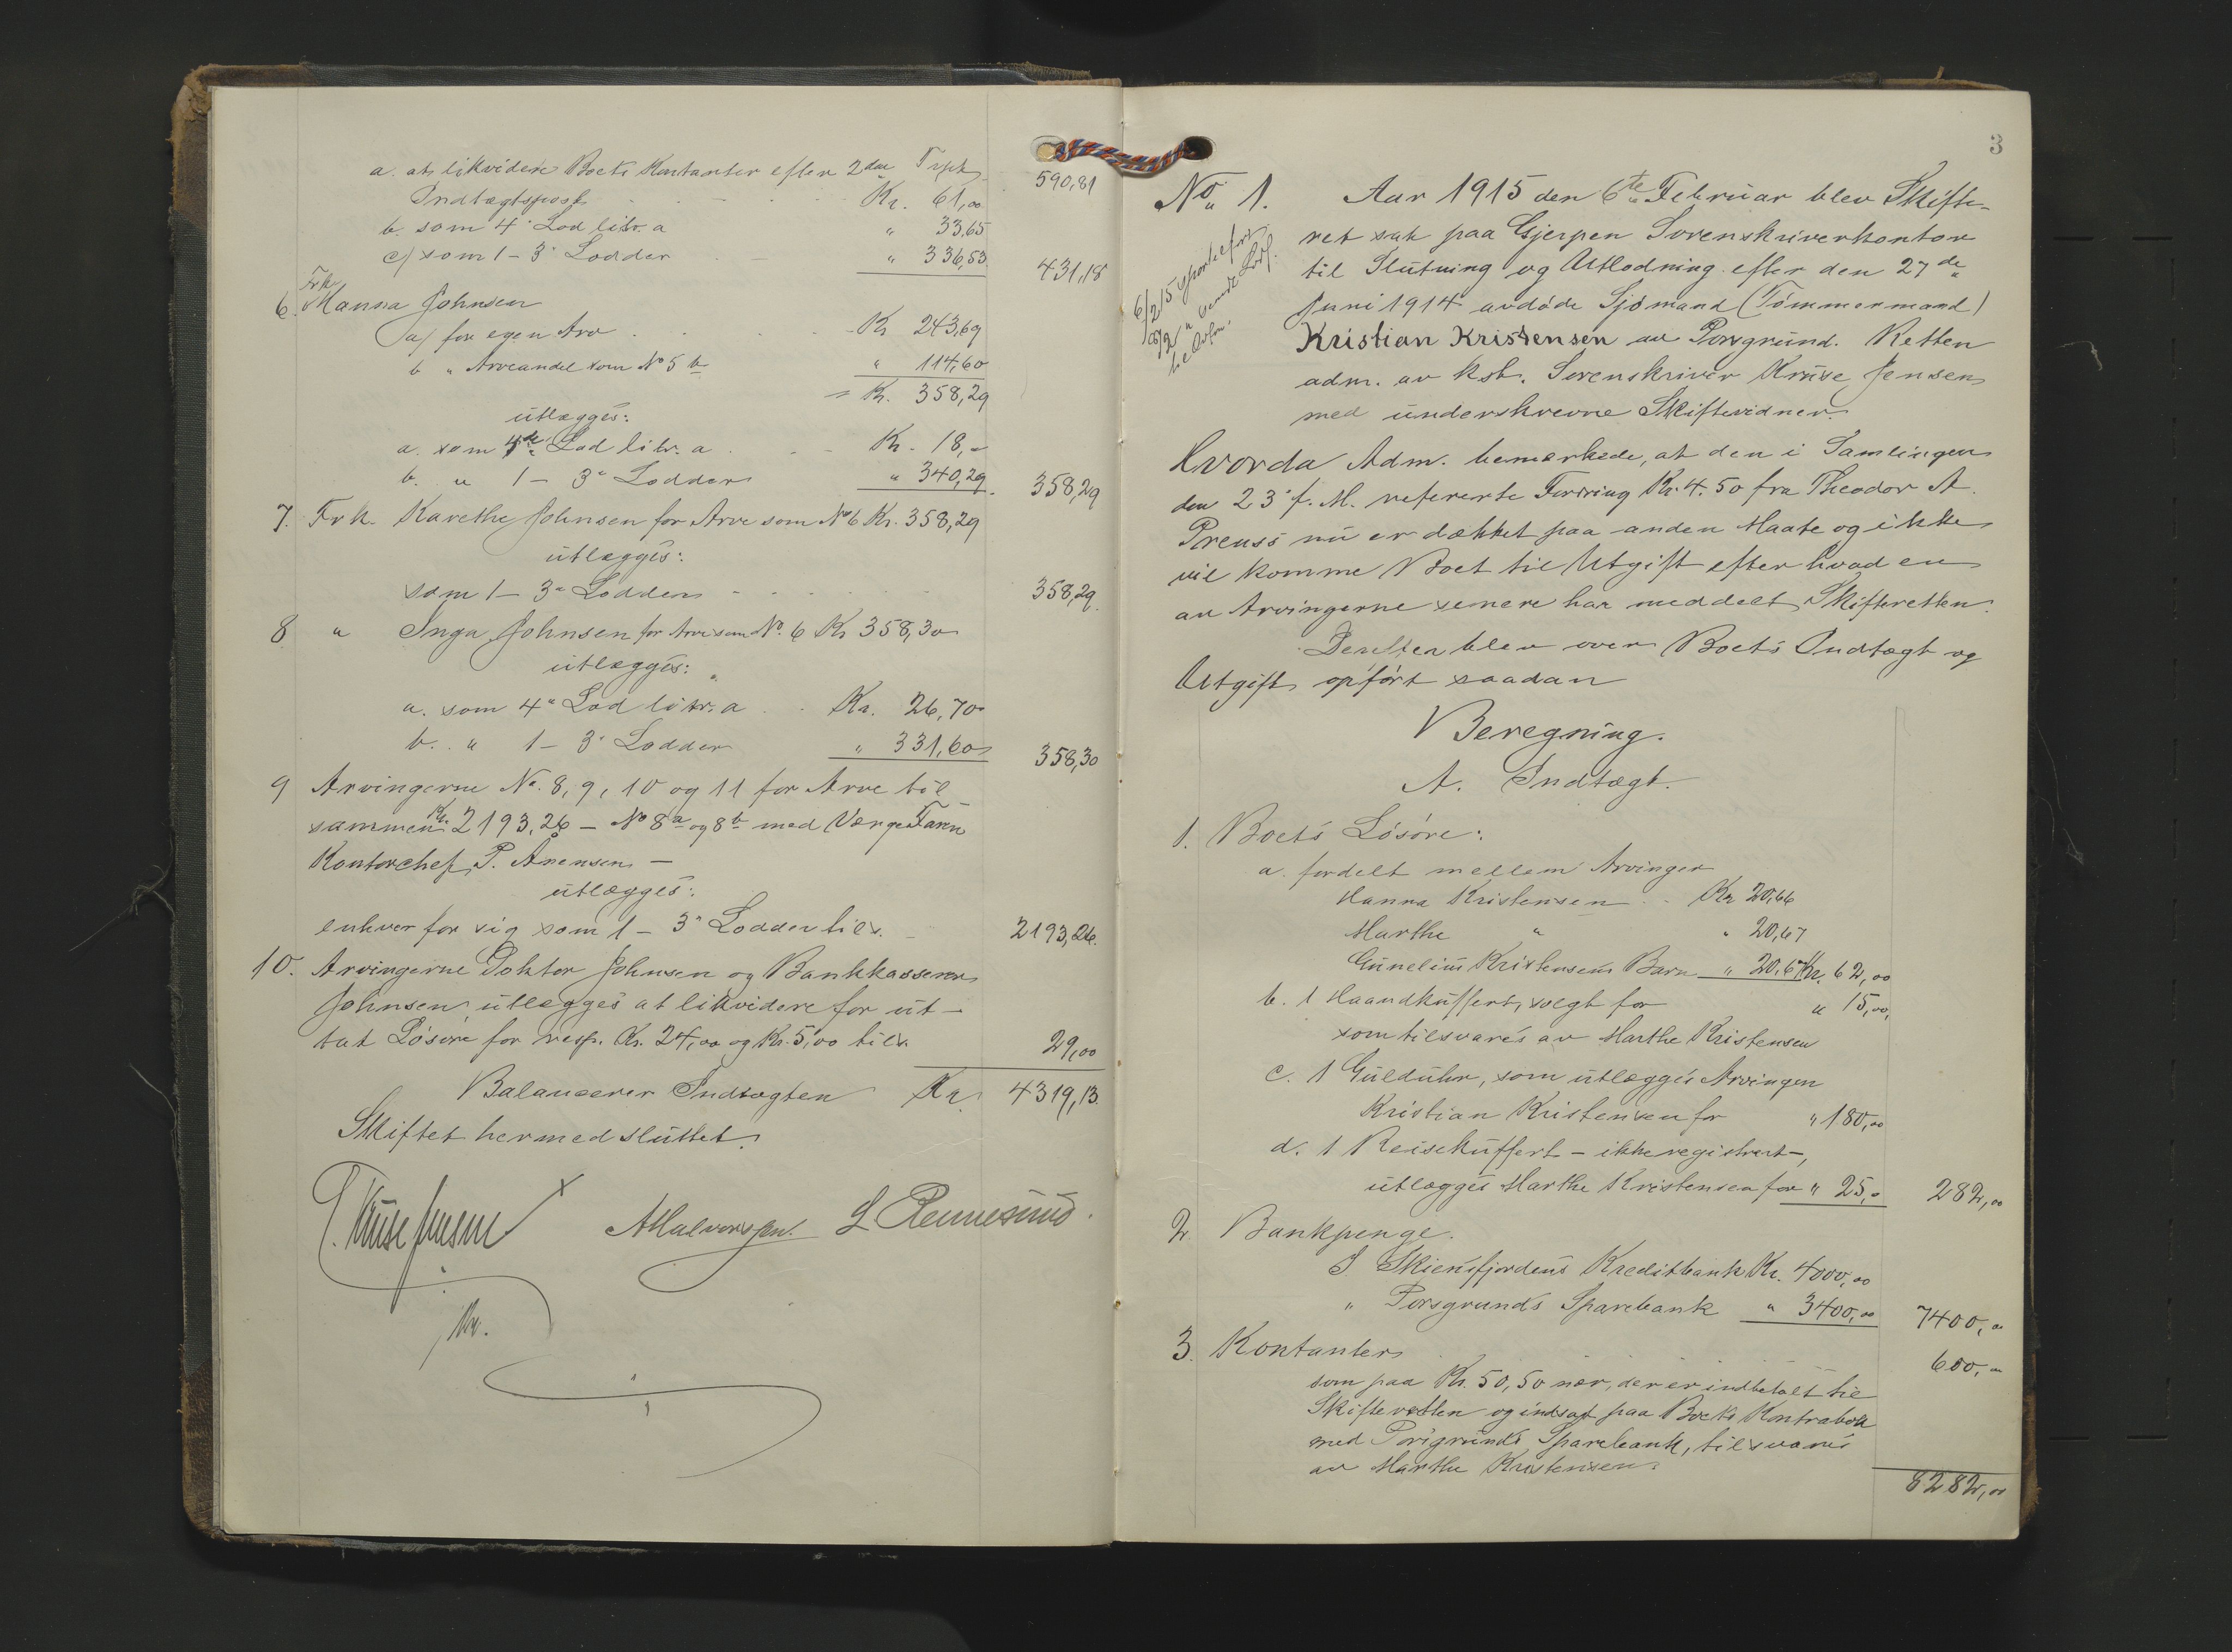 590,81
a. at likvidere Boets Kontanter efter 2den
Indtægtspost Kr. 61,00
b. som 4" Lod litr. a " 33,65
c) som 1-3" Lodder " 336,53 431,18
6. Frk. Hanna Johnsen
a) for egen Arv Kr 243,69
b " Arveandel som No 5 b " 114,60
= Kr. 358,29
utlægges:
a. som 4de Lod litr. a Kr. 18,-
b. " 1-3" Lodder " 340,29 358,29
7. Frk. Karethe Johnsen for Arve som No 6 Kr. 358,29
utlægges:
som 1-3" Lodder 358,29
8 " Inga Johnsen for Arv som No. 6 Kr 358,30
utlægges:
a. som 4" Lod litr. a Kr. 26,70
b. " 1-3" Lodder " 331,60 358,30
9 Arvingerne No. 8, 9, 10 og 11 for Arve til
sammen Kr. 2193,26 - No 8a og 8b med Værge
Kontorchef P. Anensen -
utlægges:
enhver for sig som 1-3" Lodder tils. 2193,26.
10. Arvingerne Doktor Johnsen og Bankkasserer
Johnsen utlægges at likvidere for ut-
tat Løsøre for resp. Kr. 24,00 og Kr. 5,00 tils. 29,00
Balancerer Indtægten Kr. 4319,13.
Skiftet hermed sluttet.
Kruse Jensen A Halvorsen. L Rennesund.
3
No 1. Aar 1915 den 6te Februar blev Skifte-
ret sat paa Gjerpen Sorenskriverkontor
til Slutning og Utlodning efter den 27de
Juni 1914 avdøde Sjømand (Tømmermand)
Kristian Kristensen av Porsgrund. Retten
adm. av kst. Sorenskriver Kruse Jensen
med underskrevne Skiftevidner.
Hvorda Adm. bemerkede, at den i Samlingen
den 23' f. M. refererte Fordring Kr. 4.50 fra Theodor A.
Preuss nu er dækket paa anden Maate og ikke
vil komme Boet til Utgift efter hvad en
av Arvingerne senere har meddelt Skifteretten.
Derefter blev over Boets Indtægt og
Utgift opført saadan
Beregning.
A. Indtægt.
1. Boets Løsøre:
a. fordelt mellem Arvinger
Hanna Kristensen Kr 20,66
Marthe " " 20,67
Gunelius Kristensens Barn " 20,67 Kr. 62,00
b. 1 Haandkuffert, solgt for " 15,00,
som tilsvares av Marthe Kristensen
c. 1 Gulduhr, som utlægges Arvingen
Kristian Kristensen for " 180,00
d. 1 Reisekuffert - ikke registrert -,
utlægges Marthe Kristensen for " 25,- 282,00
2. Bankpenge.
I Skiensfjordens Kreditbank Kr. 4000,00
" Porsgrunds Sparebank " 3400,00 7400,00
3. Kontanter 600,00
som paa Kr. 50,50 nær, der er indbetalt til
Skifteretten og indsat paa Boets Kontrabok
med Porsgrunds Sparebank, tilsvares
av Marthe Kristensen.
8282,00